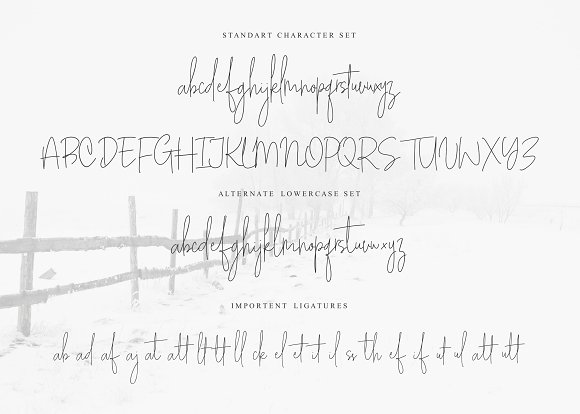 STANDART CHARACTER SET
abcdefghijklmnopqrstuvwxyz
ABCDEFGHIJKLMNOPQRSTUVWXYZ
ALTERNATE LOWERCASE SET
abcdefghijklmnopqrstuvwxyz
IMPORTENT LIGATURES
ab ad af aj at att lt tt ll ck el et it il ss th ef if ut ul att utt